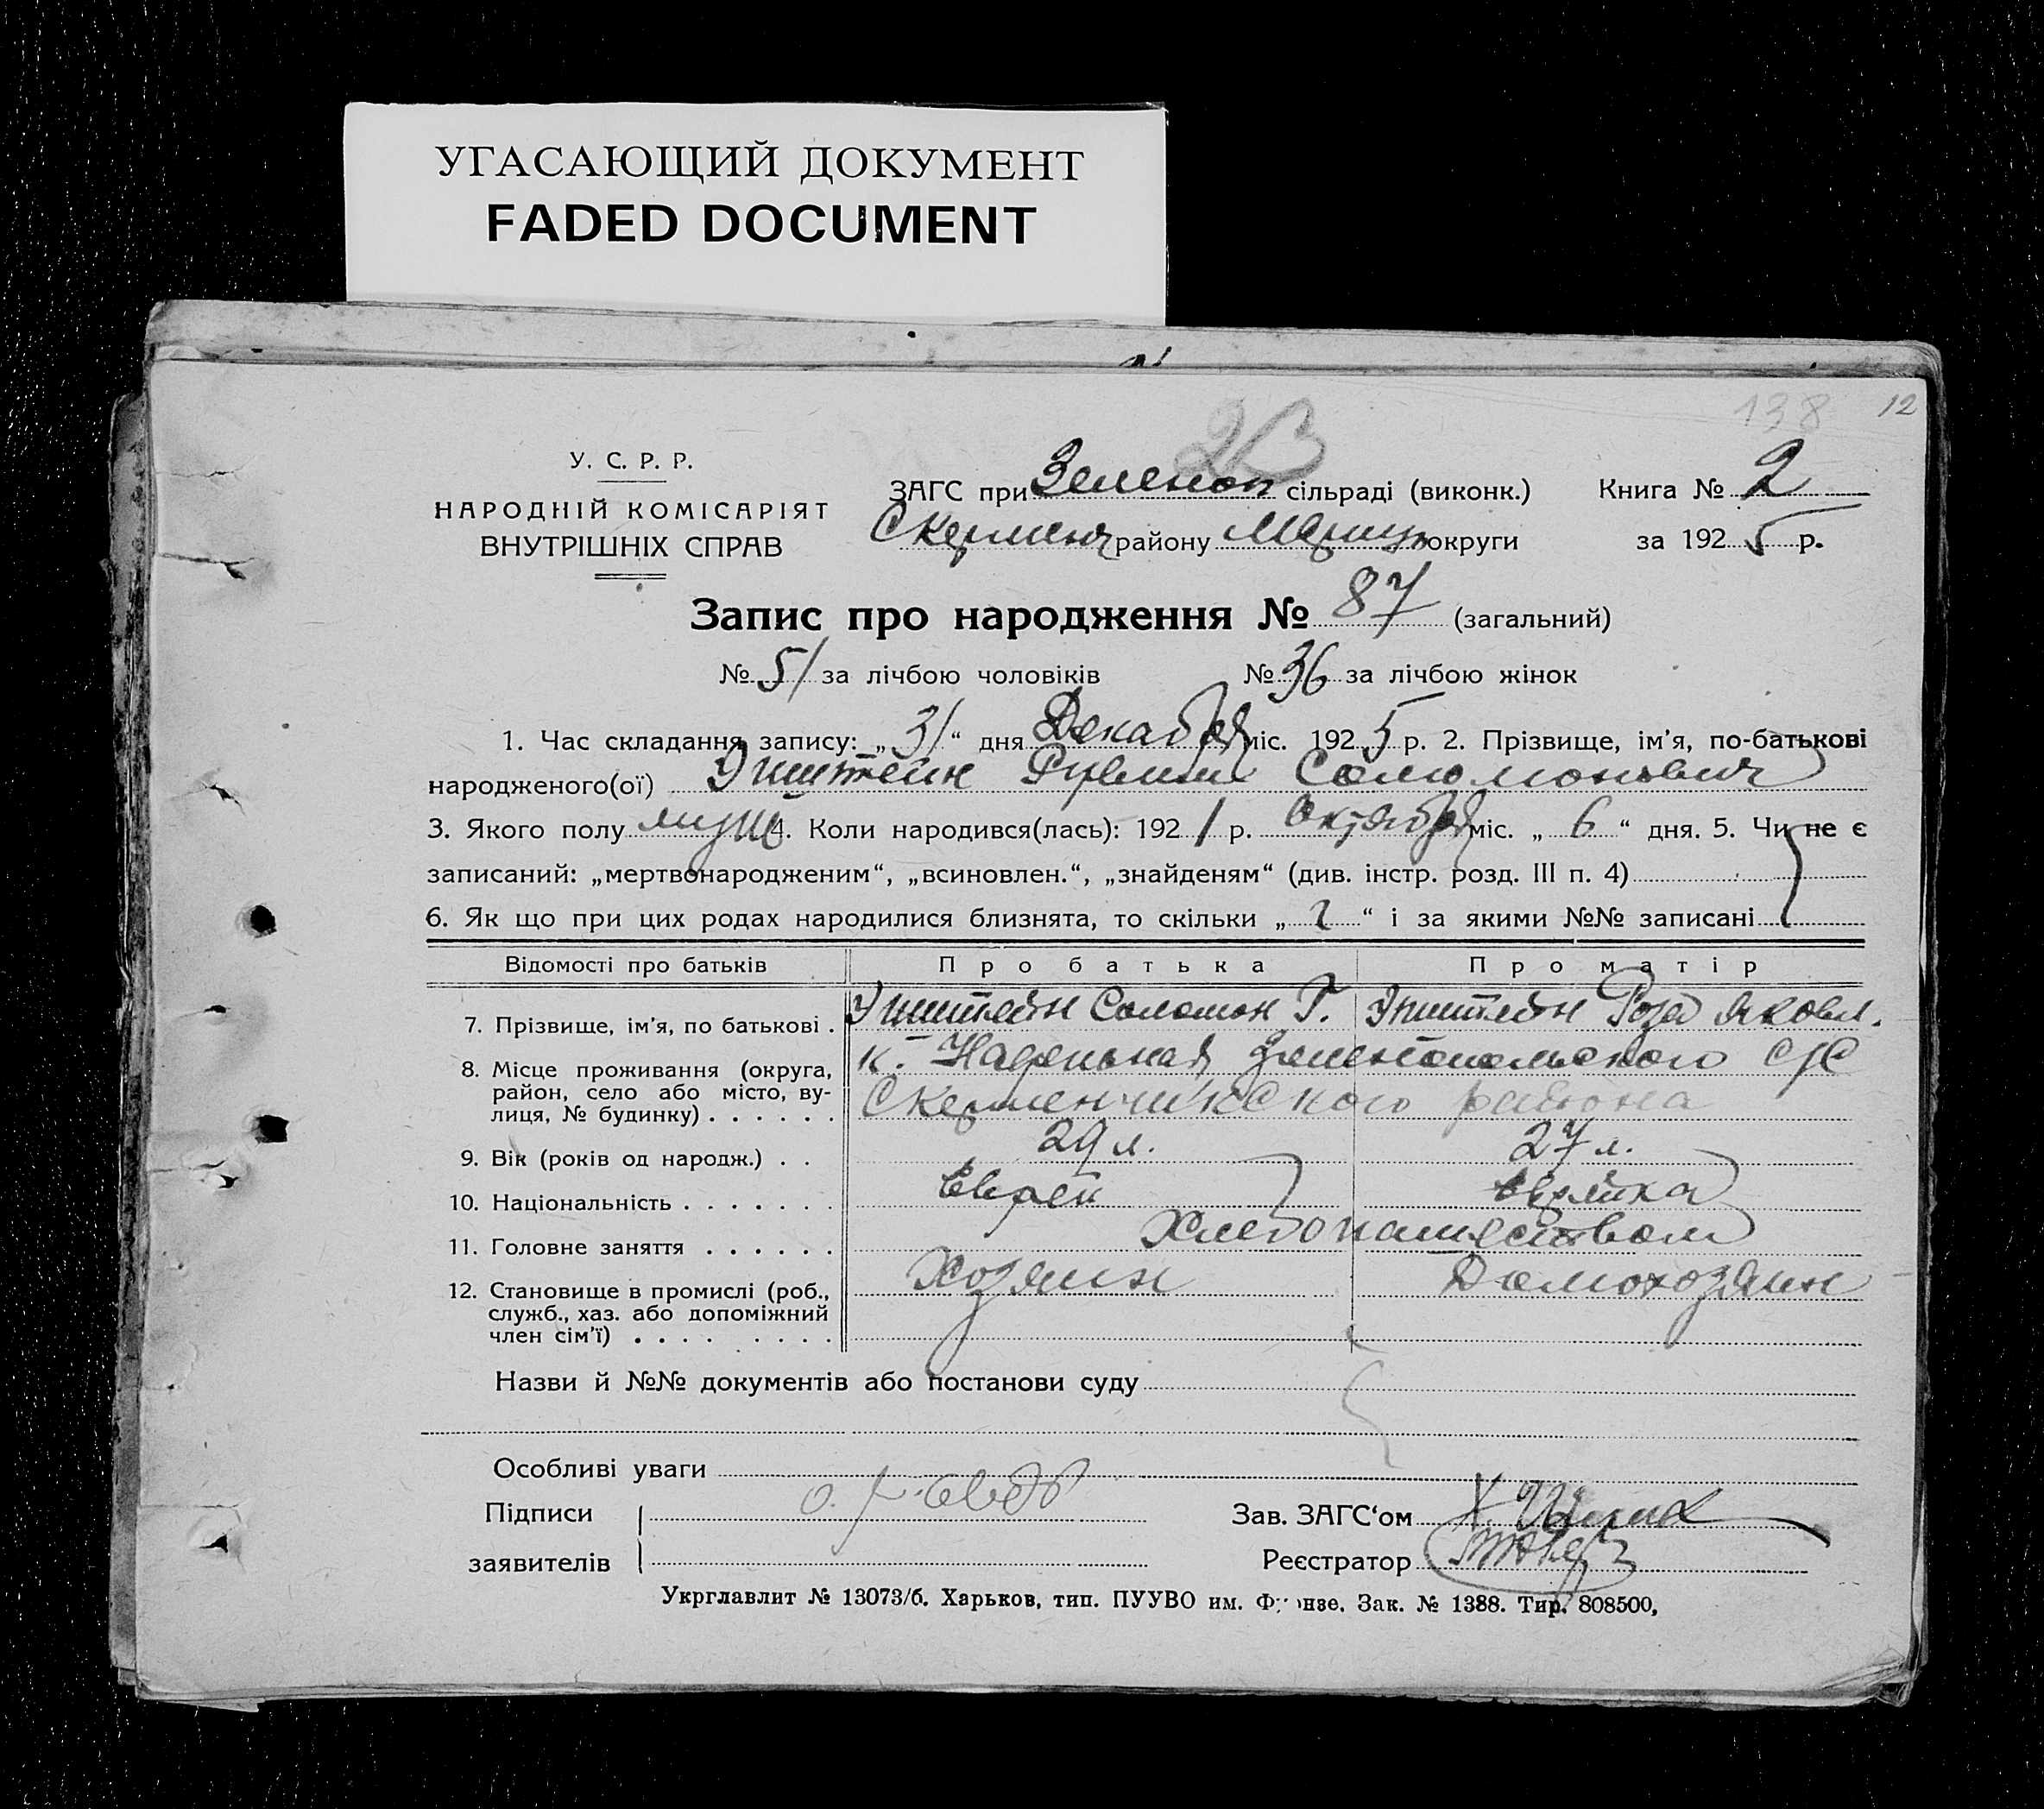 УГАСАЮЩИЙ ДОКУМЕНТ
FADED DOCUMENT
138 12
23
У. С. Р. Р.
НАРОДНІЙ КОМІСАРІЯТ
ВНУТРІШНІХ СПРАВ
ЗАГС при Зеленоп сільраді (виконк.) Книга № 2
Скерменч району Мариуп округи за 1925 р.
Запис про народження № 87 (загальний)
№ 51 за лічбою чоловіків № 36 за лічбою жінок
1. Час складання запису: „31“ дня Декабря міс. 1925 р. 2. Прізвище, ім'я, по-батькові
народженого(ої) Эпштейн Рувим Соломонович
3. Якого полу муж 4. Коли народився(лась): 1921 р. Октября міс. „6“ дня. 5. Чи не є
записаний: „мертвонародженим“, „всиновлен.“, „знайденям“ (див. інстр. розд. III п. 4)
6. Як що при цих родах народилися близнята, то скільки „ “ і за якими №№ записані
Відомості про батьків Про батька Про матір
7. Прізвище, ім'я, по батькові . Эпштейн Соломон Г. Эпштейн Роза Яковл.
8. Місце проживання (округа, район, село або місто, вулиця, № будинку) . . . . . . к. Надежная Зеленопольского С/С
Скерменчикского района
9. Вік (років од народж.) . . 29 л. 27 л.
10. Національність . . . . . . . Еврей еврейка
11. Головне заняття . . . . . . Хлебопашеством
12. Становище в промислі (роб., служб., хаз. або допоміжний член сім'ї) . . . . . . . . Хозяин Домохозяин
Назви й №№ документів або постанови суду
Особливі уваги
Підписи
заявителів
Зав. ЗАГС‘ом
Реєстратор
Укрглавлит № 13073/б. Харьков, тип. ПУУВО им. Фрунзе. Зак. № 1388. Тир. 808500,